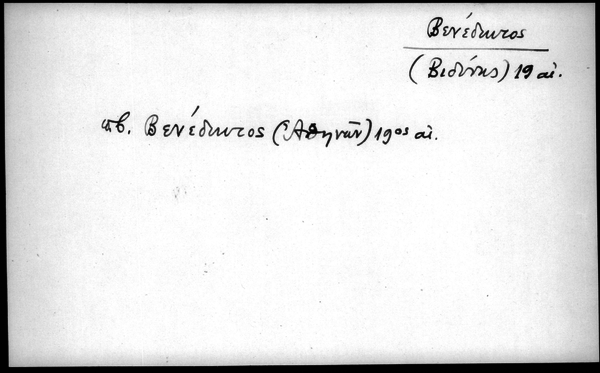 Βενέδικτος
(Βιδύνης) 19 αἰ.
πβ. Βενέδικτος (Ἀθηνῶν) 19ος αἰ.